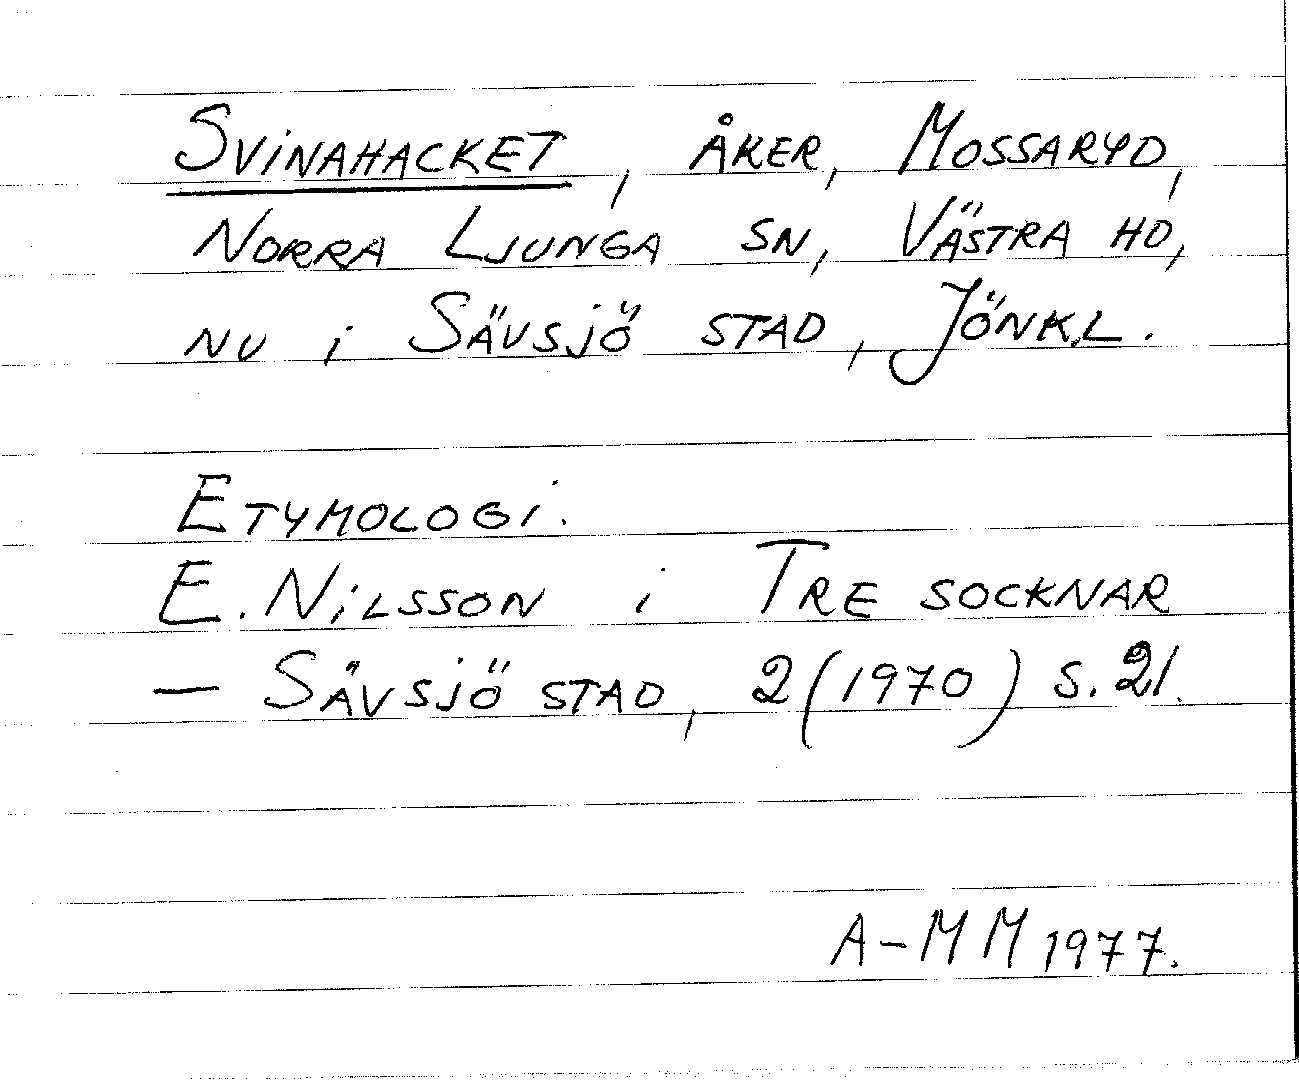 SVINAHACKET, ÅKER, MOSSARYD,
NORRA LJUNGA SN, VÄSTRA HD,
NU i SÄVSJÖ STAD, JÖNK.L.
ETYMOLOGI.
E. NILSSON i TRE SOCKNAR
— SÄVSJÖ STAD, 2 (1970) S. 21.
A-MM 1977.